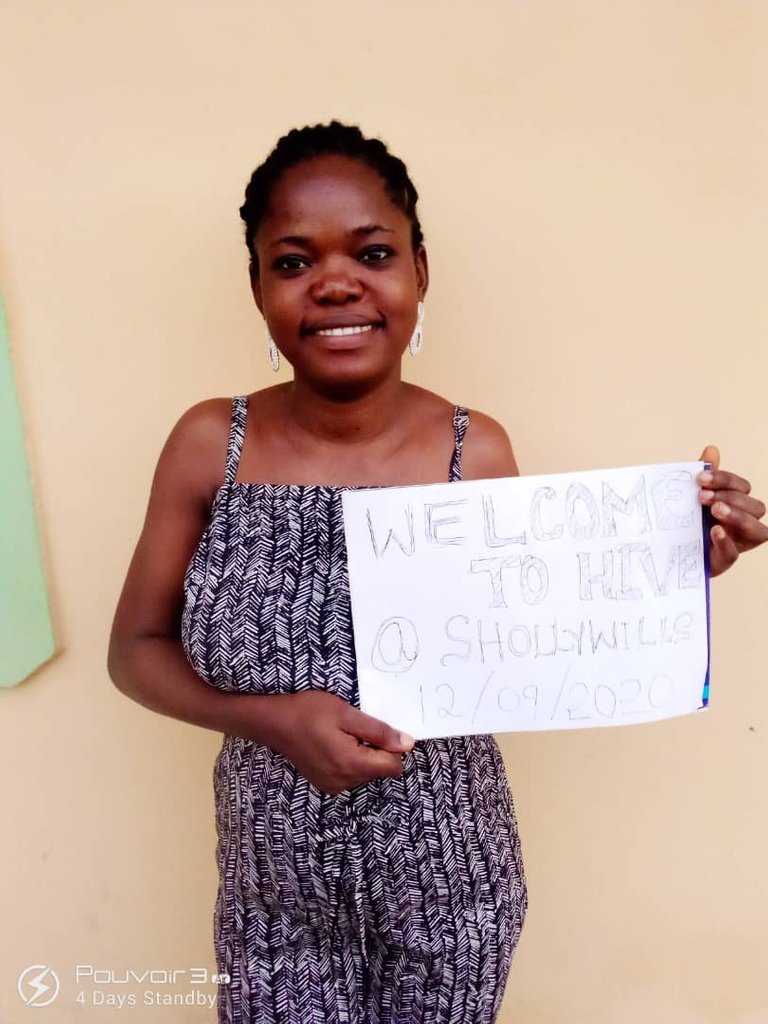 WELCOME
TO HIVE
@ SHOLLYWILLS
12/09/2020
Pouvoir 3 Air
4 Days Standby